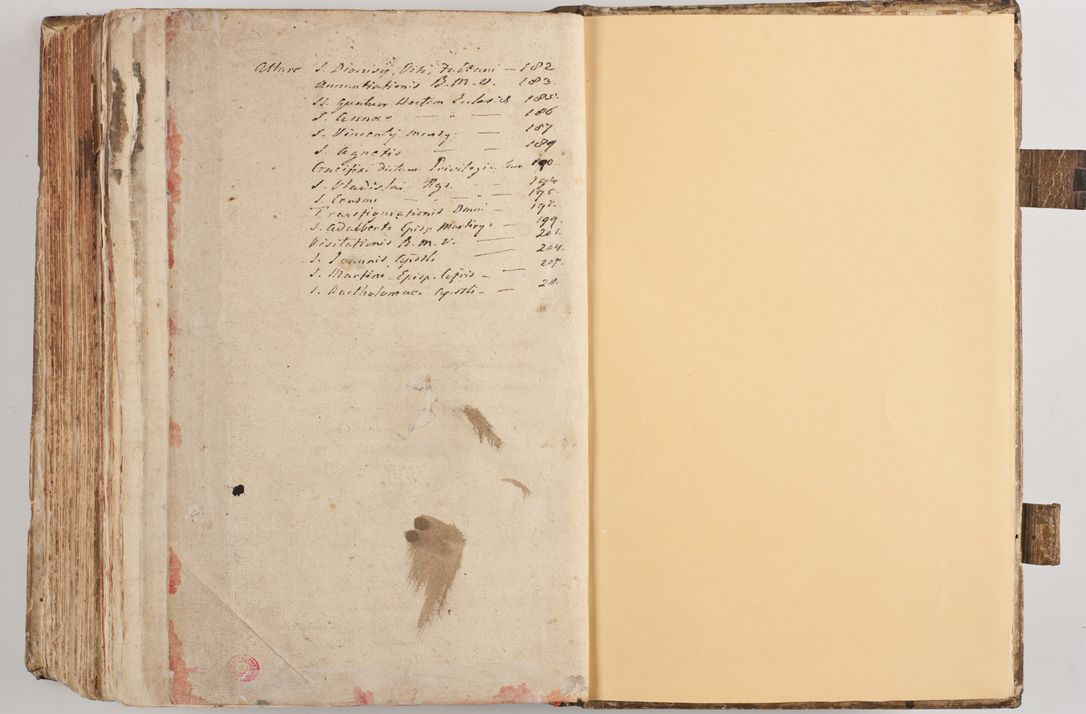 Altare S. Dionisij, Viti, Fabiani — 182
Annuntiationis B. M. V. 183.
SS. Quatuor Doctorum Ecclesiae 185.
S. Annae — " — 186
S. Vincentij Martyr. — 187
S. Agnetis — — 189
Crucifixi dictum 190
S. Vladislai Rgs. - - 194
S. Erasmi — — " — 195.
Transfigurationis Domini — 197.
S. Adalberti Episp. Martiris — 199.
Visitationis B. M. V. — 201.
S. Joannis Apostli — 204.
S. Martini Episp. — 207.
S. Bartholomaei Apostli - —